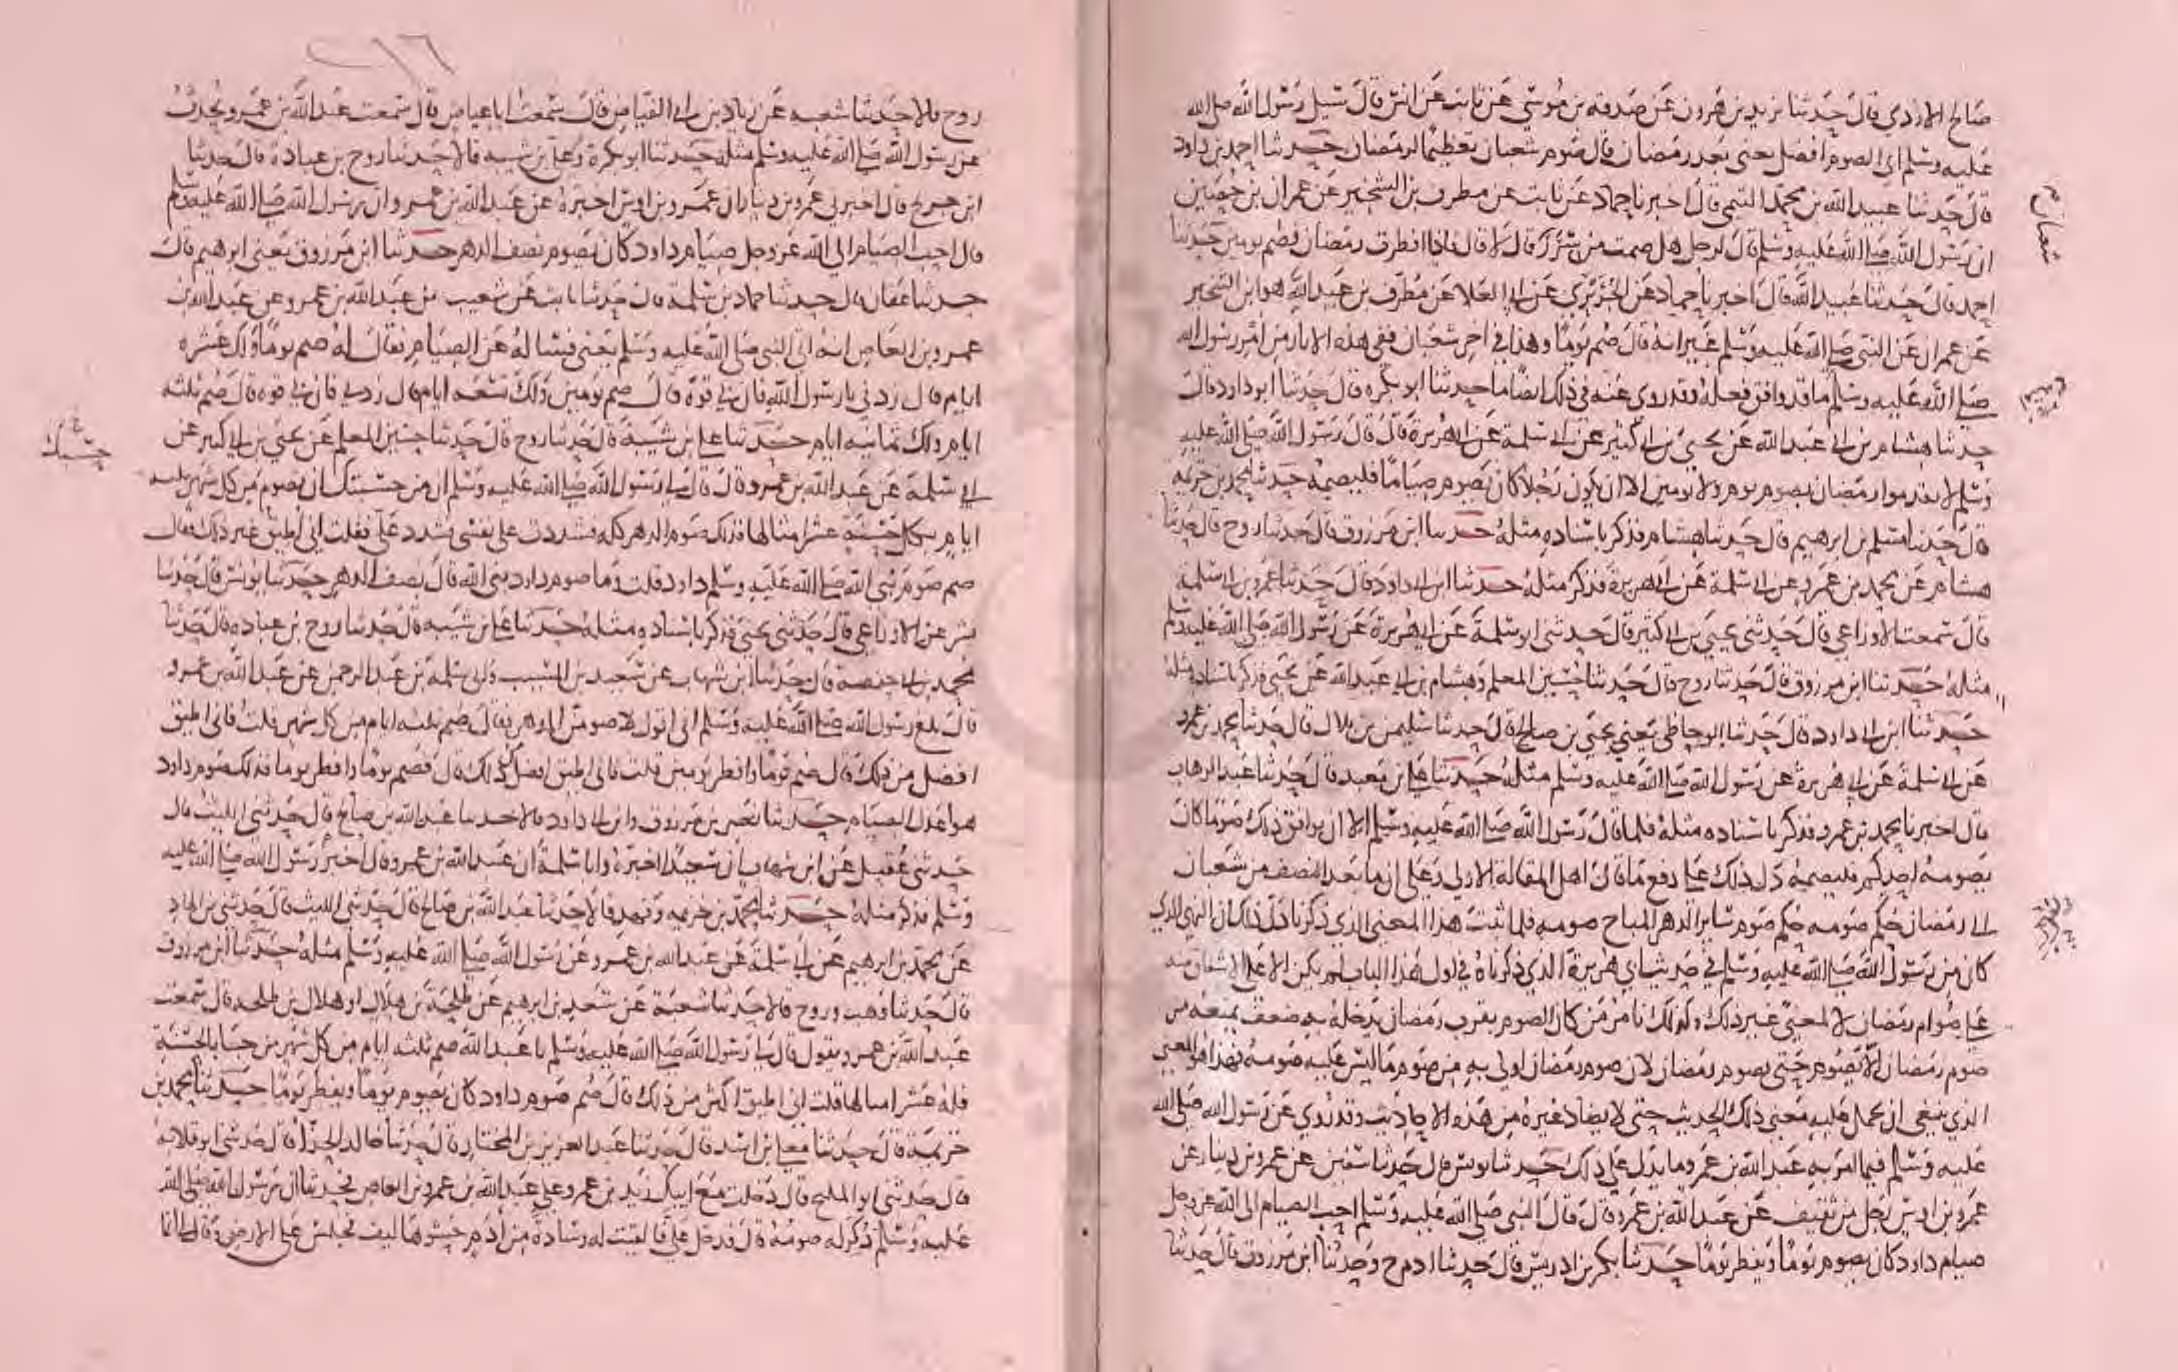 صالح الازدى قال حدثنا يزيد بن هرون عن صدقه بن موسى عن ثابت عن انس قال سيل رسول الله صلى الله
عليه وسلم اى الصوم افضل يعنى بعد رمضان قال صوم شعبان تعظيما لرمضان حدثنا احمد بن داود
قال حدثنا عبيد الله بن محمد التيمى قال اخبرنا حماد عن ثابت عن مطرف بن الشخير عن عمران بن حصين
ان رسول الله صلى الله عليه وسلم قال لرجل هل صمت من سرر قال لا قال فاذا افطرت رمضان فصم يومين حدثنا
احمد قال حدثنا عبيد الله قال اخبرنا حماد عن الجريرى عن ابى العلا عن مطرف بن عبد الله هو ابن الشخير
عن عمران عن النبى صلى الله عليه وسلم غير انه قال صم يوما وهذا فى اخر شعبان ففى هذه الاثار من امر رسول الله
صلى الله عليه وسلم ما قد وافق فعله وقد روى عنه فى ذلك ايضا ما حدثنا ابو بكره قال حدثنا ابو داود قال
حدثنا هشام بن ابى عبد الله عن يحيى بن ابى كثير عن ابى سلمة عن ابى هريرة قال قال رسول الله صلى الله عليه
وسلم لا تقدموا رمضان بصوم يوم ولا يومين الا ان يكون رجلا كان يصوم صياما فليصمه حدثنا محمد بن خزيمه
قال حدثنا مسلم بن ابرهيم قال حدثنا هشام فذكر باسناده مثله حدثنا ابن مرزوق قال حدثنا روح قال حدثنا
هشام عن محمد بن عمرو عن ابى سلمة عن ابى هريرة فذكر مثله حدثنا ابن ابى داود قال حدثنا عمرو بن ابى سلمة
قال سمعت الاوزاعى قال حدثنى يحيى بن ابى كثير قال حدثنى ابو سلمة عن ابى هريرة عن رسول الله صلى الله عليه وسلم
مثله حدثنا ابن مرزوق قال حدثنا روح قال حدثنا حسين المعلم وهشام بن ابى عبد الله عن يحيى فذكر باسناده مثله
حدثنا ابن ابى داود قال حدثنا الوحاظى يعنى يحيى بن صالح قال حدثنا سليمن بن بلال قال حدثنا محمد بن عمرو
عن ابى سلمة عن ابى هريرة عن رسول الله صلى الله عليه وسلم مثله حدثنا على بن معبد قال حدثنا عبد الوهاب
قال اخبرنا محمد بن عمرو فذكر باسناده مثله فلما قال رسول الله صلى الله عليه وسلم الا ان يوافق ذلك صوما كان
يصومه احدكم فليصمه دل ذلك على دفع ما قال اهل المقالة الاولى وعلى ان ما بعد النصف من شعبان
الى رمضان حكم صومه حكم صوم ساير الدهر المباح صومه فلما ثبت هذا المعنى الذى ذكرنا دل ذلك ان النهى الذى
كان من رسول الله صلى الله عليه وسلم فى حديث ابى هريرة الذى ذكرناه فى اول هذا الباب لم يكن الا على الاشفاق منه
على صوام رمضان لا لمعنى غير ذلك وكذلك نامر من كان الصوم بقرب رمضان يدخله به ضعف يمنعه من
صوم رمضان الا يصوم حتى يصوم رمضان لان صوم رمضان اولى به من صوم ما ليس عليه صومه فهذا هو المعنى
الذى ينبغى ان يحمل عليه معنى ذلك الحديث حتى لا يضاد غيره من هذه الاحاديث وقد روى عن رسول الله صلى الله
عليه وسلم فيما امر به عبد الله بن عمرو ما يدل على ذلك حدثنا يونس قال حدثنا سفين عن عمرو بن دينار عن
عمرو بن اوس رجل من ثقيف عن عبد الله بن عمرو قال قال النبى صلى الله عليه وسلم احب الصيام الى الله عز وجل
صيام داود كان يصوم يوما ويفطر يوما حدثنا بكر بن ادريس قال حدثنا ادم ح وحدثنا ابن مرزوق قال حدثنا
شعبان
٢١٦
روح قالا حدثنا شعبه عن زياد بن ابى الفياض قال سمعت ابا عياض قال سمعت عبد الله بن عمرو يحدث
عن رسول الله صلى الله عليه وسلم مثله حدثنا ابو بكرة وعلى بن شيبه قالا حدثنا روح بن عبادة قال حدثنا
ابن جريج قال اخبرنى عمرو بن دينار ان عمرو بن اوس اخبره عن عبد الله بن عمرو ان رسول الله صلى الله عليه وسلم
قال احب الصيام الى الله عز وجل صيام داود كان يصوم نصف الدهر حدثنا ابن مرزوق يعنى ابرهيم قال
حدثنا عفان قال حدثنا حماد بن سلمة قال حدثنا ثابت عن شعيب بن عبد الله بن عمرو عن عبد الله بن
عمرو بن العاص انه اتى النبى صلى الله عليه وسلم يعنى فساله عن الصيام فقال له صم يوما ولك عشره
ايام قال زدنى يا رسول الله فان بى قوة قال صم يومين ولك تسعه ايام قال زدنى فان بى قوه قال صم ثلثه
ايام ولك ثمانيه ايام حدثنا على بن شيبة قال حدثنا روح قال حدثنا حسين المعلم عن يحيى بن ابى كثير عن
ابى سلمة عن عبد الله بن عمرو قال قال لى رسول الله صلى الله عليه وسلم ان من حسبك ان تصوم من كل شهر ثلثه
ايام بكل حسنة عشر امثالها فذلك صوم الدهر كله فشددت على نفسى فشدد على فقلت انى اطيق غير ذلك فقال
صم صوم نبى الله صلى الله عليه وسلم داود قلت وما صوم داود نبى الله قال نصف الدهر حدثنا يونس قال حدثنا
بشر عن الاوزاعى قال حدثنى يحيى فذكر باسناده مثله حدثنا على بن شيبه قال حدثنا روح بن عباده قال حدثنا
محمد بن ابى حفصة قال حدثنا ابن شهاب عن سعيد بن المسيب وابى سلمة بن عبد الرحمن عن عبد الله بن عمرو
قال بلغ رسول الله صلى الله عليه وسلم انى اقول لاصومن الدهر فقال صم ثلثه ايام من كل شهر قلت فانى اطيق
افضل من ذلك قال صم يوما وافطر يومين قلت فانى اطيق افضل من ذلك قال فصم يوما وافطر يوما فذلك صوم داود
هو اعدل الصيام حدثنا نصر بن مرزوق وابن ابى داود قالا حدثنا عبد الله بن صالح قال حدثنى الليث قال
حدثنى عقيل عن ابن شهاب ان سعيدا اخبره وابا سلمة ان عبد الله بن عمرو قال اخبر رسول الله صلى الله عليه
وسلم فذكر مثله حدثنا محمد بن خزيمه وفهد قالا حدثنا عبد الله بن صالح قال حدثنى الليث قال حدثنى بن الهاد
عن محمد بن ابرهيم عن ابى سلمة عن عبد الله بن عمرو عن رسول الله صلى الله عليه وسلم مثله حدثنا ابن مرزوق
قال حدثنا وهب وروح قالا حدثنا شعبة عن سعد بن ابرهيم عن طلحة بن هلال او هلال بن طلحه قال سمعت
عبد الله بن عمرو يقول قال لى رسول الله صلى الله عليه وسلم يا عبد الله صم ثلثه ايام من كل شهر من جا بالحسنة
فله عشر امثالها قلت انى اطيق اكثر من ذلك قال صم صوم داود كان يصوم يوما ويفطر يوما حدثنا محمد بن
خزيمة قال حدثنا معلى بن اسد قال حدثنا عبد العزيز بن المختار قال حدثنا خالد الحذا قال حدثنى ابو قلابه
قال حدثنى ابو المليح قال دخلت مع ابيك زيد بن عمرو على عبد الله بن عمرو بن العاص فحدثنا ان رسول الله صلى الله
عليه وسلم ذكر له صومه قال فدخل على فالقيت له وسادة من ادم حشوها ليف فجلس على الارض وقال انما
حسبك